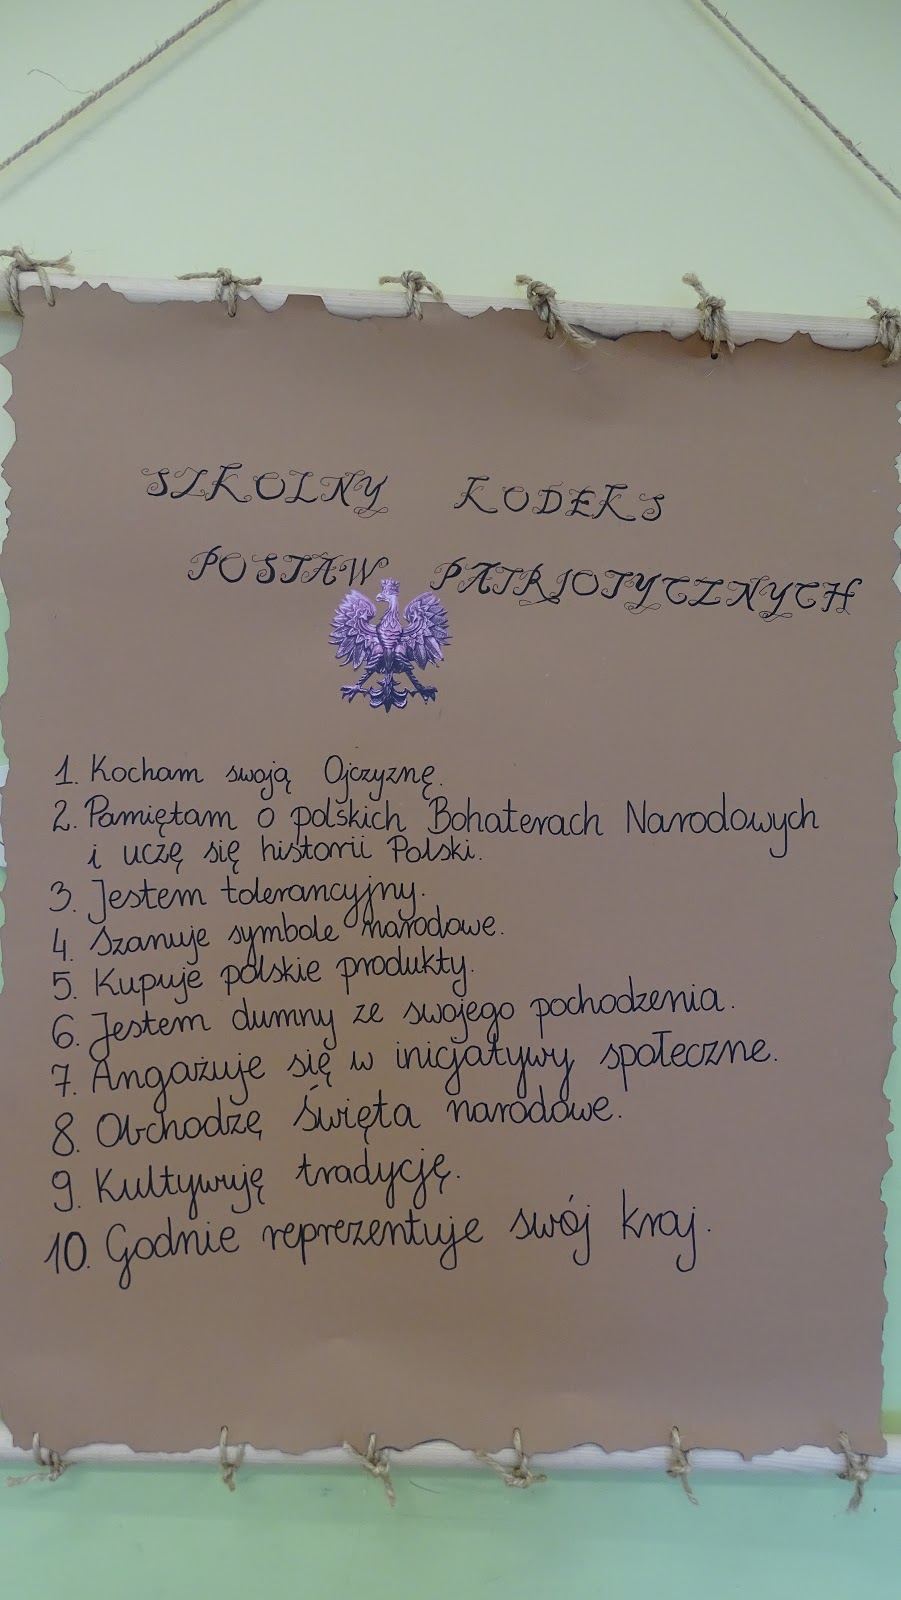 SZKOLNY KODEKS
POSTAW PATRIOTYCZNYCH
1. Kocham swoją Ojczyznę.
2. Pamiętam o polskich Bohaterach Narodowych
i uczę się historii Polski.
3. Jestem tolerancyjny.
4. Szanuje symbole narodowe.
5. Kupuje polskie produkty.
6. Jestem dumny ze swojego pochodzenia.
7. Angażuje się w inicjatywy społeczne.
8. Obchodzę Święta narodowe.
9. Kultywuję tradycję.
10. Godnie reprezentuje swój kraj.